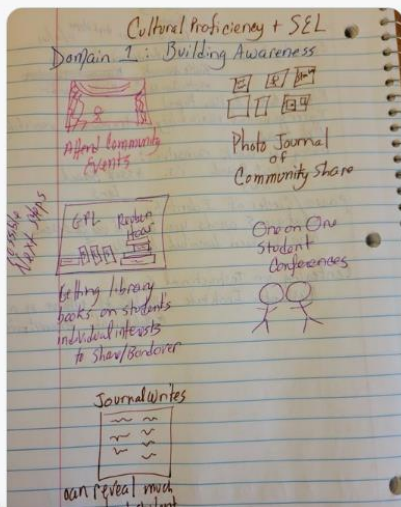 Cultural Proficiency + SEL
Domain 1: Building Awareness
Attend Community
Events
Photo Journal
of
Community Share
Possible
Next Steps
GPL
Getting library
books on student's
individual interests
to Share/Bond over
One on One
Student
Conferences
Journal Writes
can reveal much
student